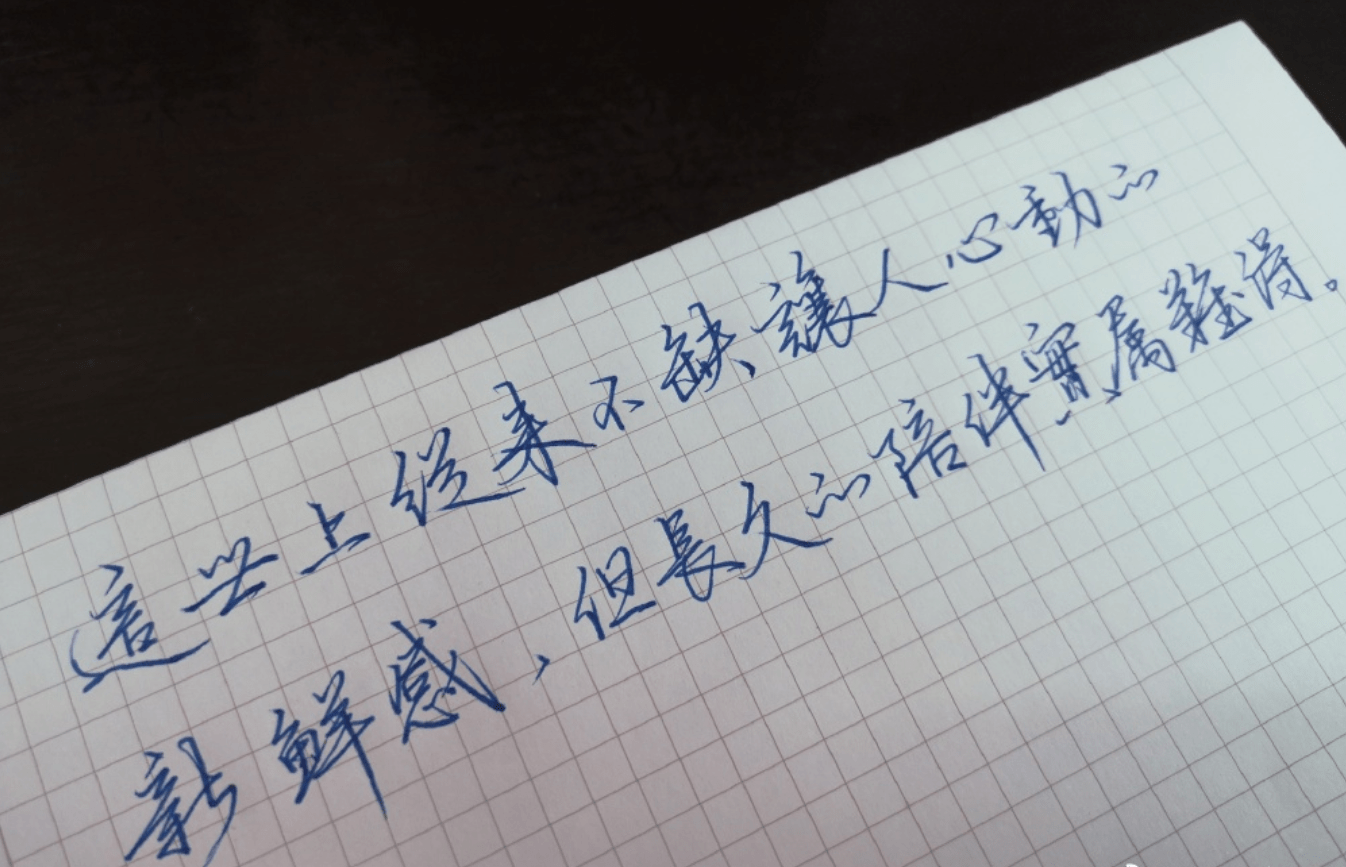 這世上從来不缺讓人心動的
新鮮感，但長久的陪伴實属難得。